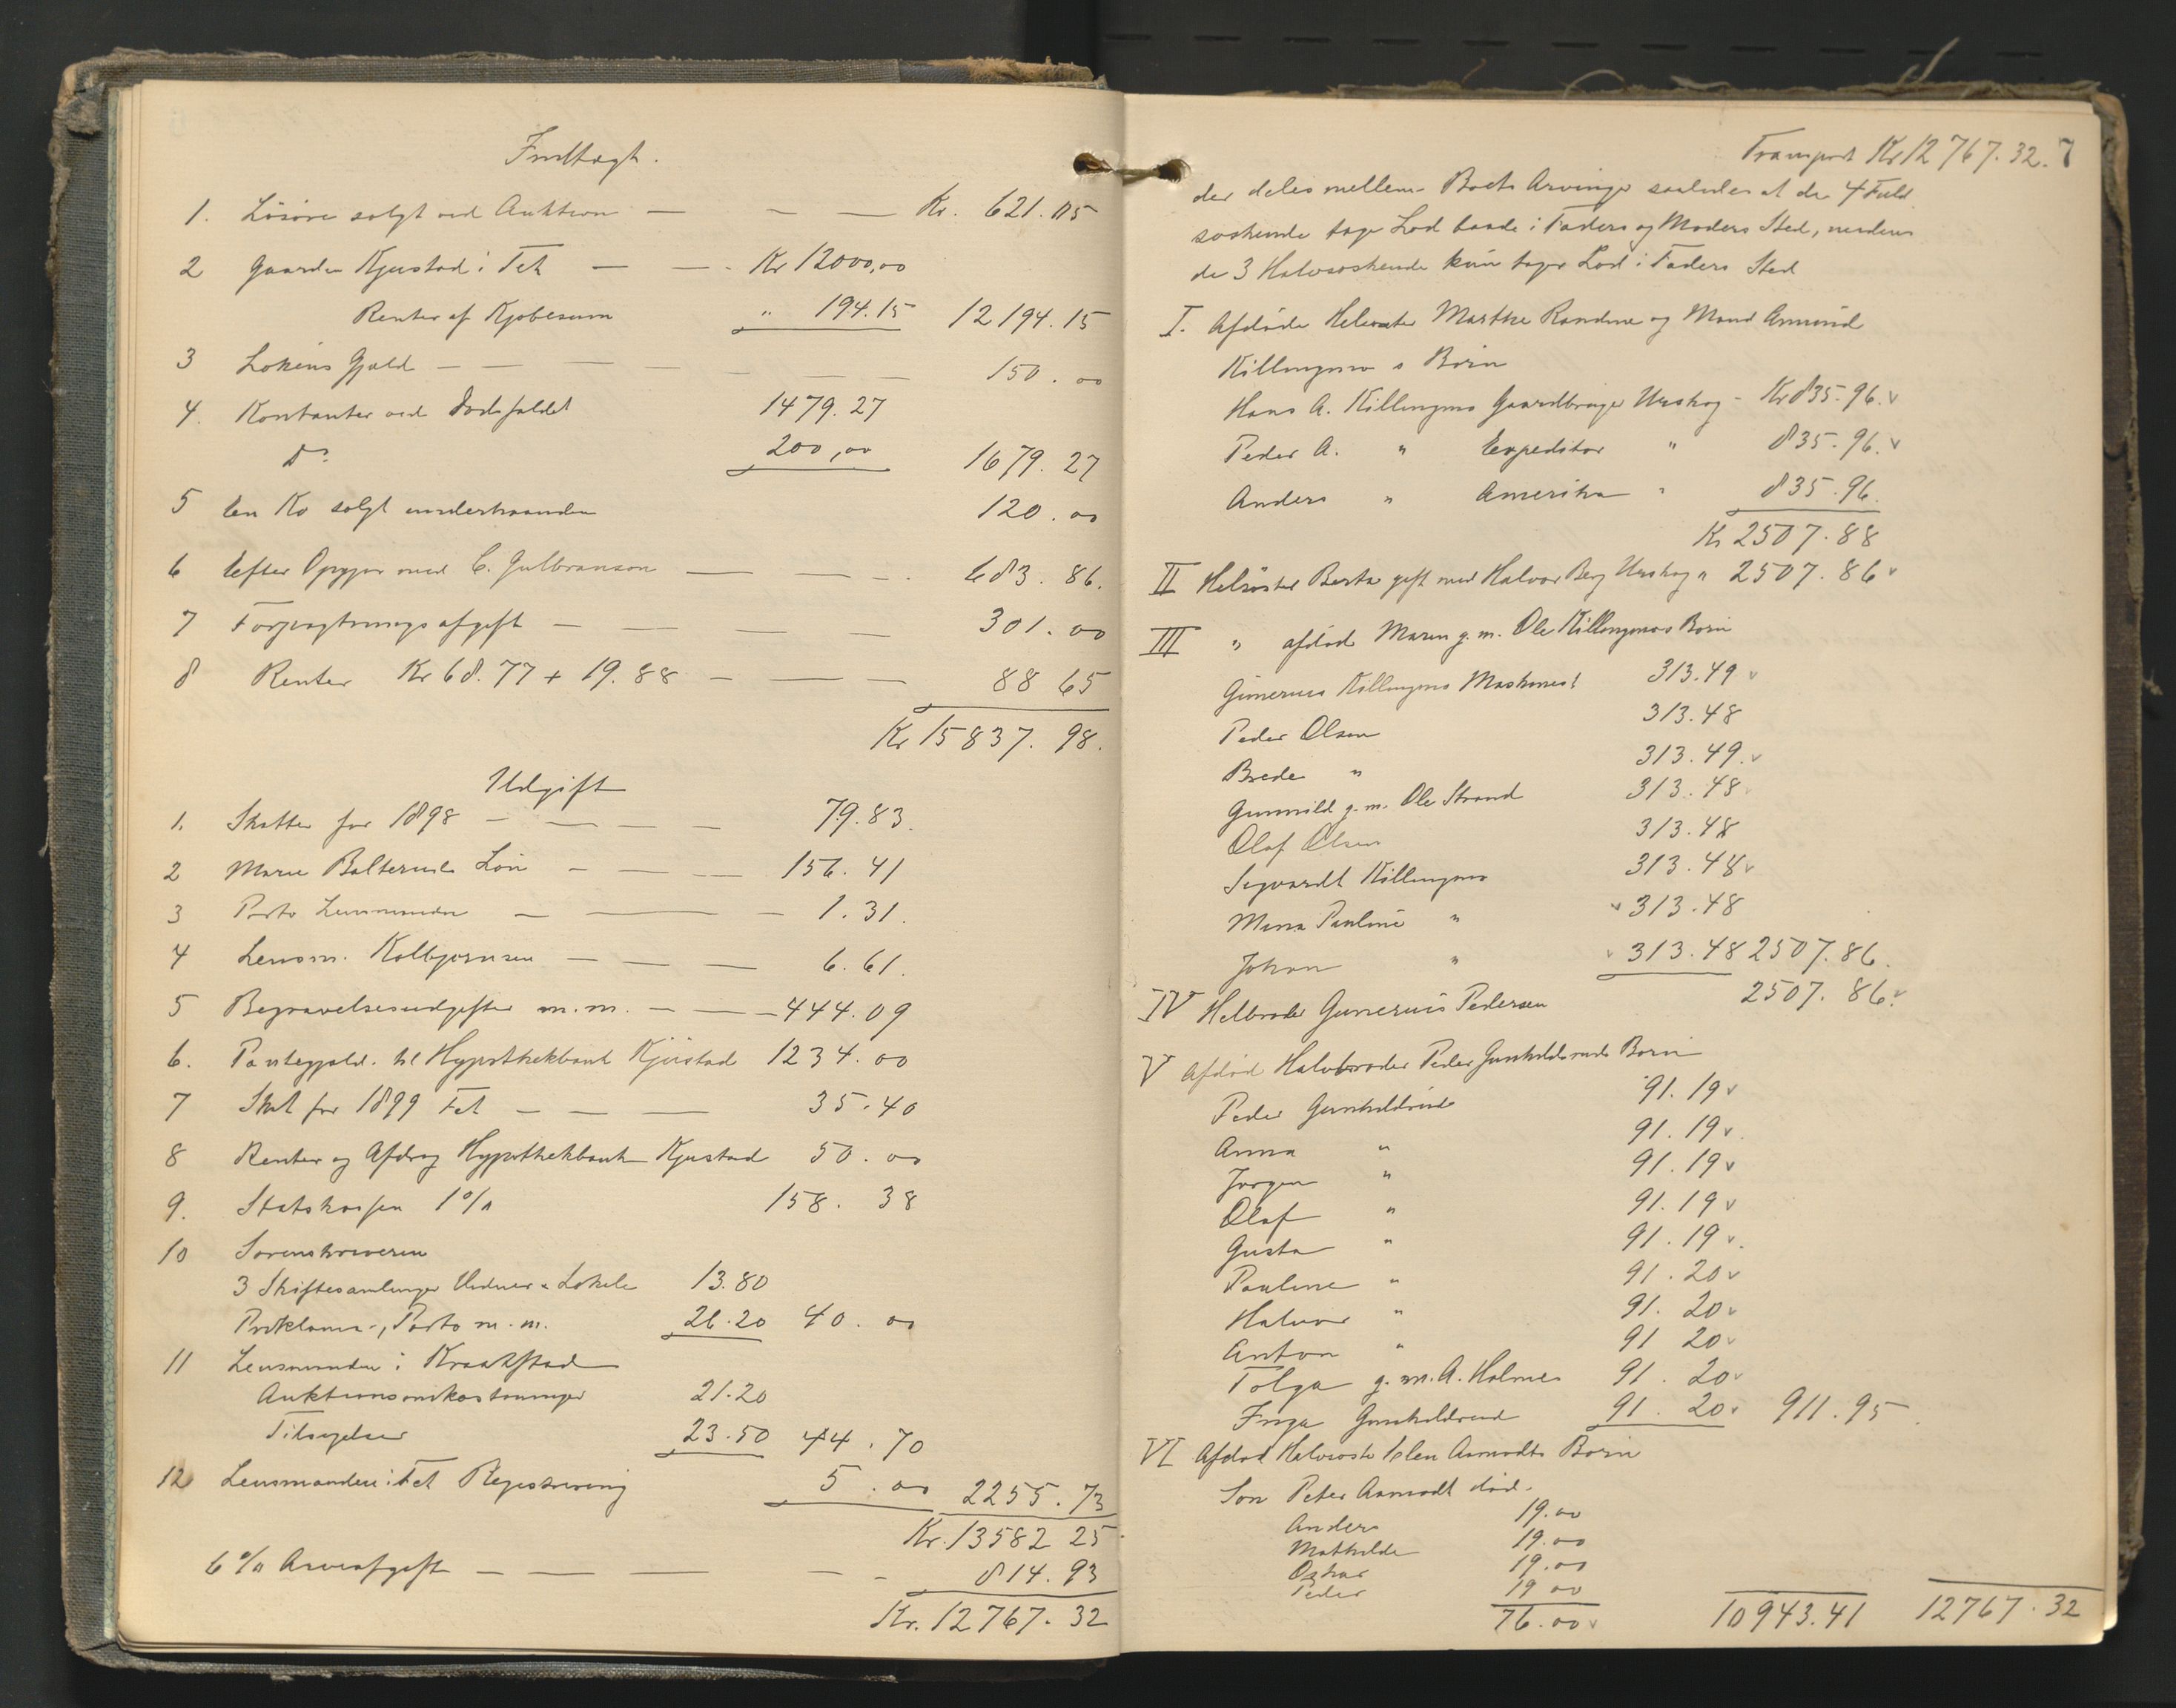 Indtægt.
1. Lösöre solgt ved Auktion — — — Kr. 621.05
2 Gaarden Kjustad i Fet — — Kr 12000,00
Renter af Kjøbesum " 194.15 12194.15
3 Lokens Gjæld — — — — — — 150.00
4. Kontanter ved Dødsfaldet 1479.27
Do 200,00 1679.27
5 En Ko solgt underhaanden 120.00
6 Efter Opgjør med C. Gulbranson — — — 683.86.
7 Forpagtningsafgift — — — — 301.00
8 Renter Kr 68.77 + 19.88 — — — 88 65
Kr 15837.98.
Udgift
1. Skatter for 1898 — — — — 79.83.
2 Marie Balteruds Løn — — — 156.41
3 Porto Lensmanden — — — 1.31.
4 Lensm. Kolbjørnsen — — — 6.61.
5 Begravelsesudgifter m.m. — — — 444.09
6. Pantegjæld. til Hypothekbank Kjustad 1234.00
7 Skat for 1899 Fet — — — 35.40
8 Renter og Afdrag Hypothekbank Kjustad 50.00
9. Statskassen 1% 158.38
10 Sorenskriveren
3 Skiftesamlinger Vidner & Lokale 13.80
Proklama-, Porto m.m. 26.20 40.00
11 Lensmanden i Kraakstad
Auktionsomkostninger 21.20
Tilsigelser 23.50 44.70
12 Lensmanden i Fet Registrering 5.00 2255.73
Kr. 13582 25
6% Arveafgift — — — — — 814.93
Kr. 12767.32
Transport Kr 12767.32. 7
der deles mellem Boets Arvinger saaledes at de 4 Fuld
søskende tager Lod baade i Faders og Moders Sted, medens
de 3 Halvsøskende kun tager Lod i Faders Sted
I. Afdøde Helsøster Marthe Randine og Mand Amund
Killingmo s Børn
Hans A. Killingmo Gaardbruger Urskog - Kr 835.96.
Peder A. " Expeditør " 835.96.
Anders " Amerika " 835.96.
Kr 2507.88
II Helsøster Berta gift med Halvor Berg Urskog " 2507.86
III " afdød Maren g.m. Ole Killingmos Børn
Gunerius Killingmo Maskinist 313.49
Peder Olsen 313.48
Brede " 313.49.
Gunnild g.m. Ole Strand 313.48
Olaf Olsen 313.48
Segvardt Killingmo 313.48
Mina Pauline " 313.48
Johan " 313.48 2507.86.
IV Helbroder Gunerius Pedersen 2507.86.
V Afdød Halvbroder Peder Gunhildsruds Børn
Peder Gunhildsrud 91.19
Anna " 91.19
Jørgen " 91.19
Olaf " 91.19
Gusta " 91.19
Pauline " 91.20
Halvor " 91.20
Anton " 91 20
Tolga g.m. A. Holmes 91.20
Inga Gunhildsrud 91.20 911.95
VI Afdød Halvsøster Elen Aamodts Børn
Søn Peter Aamodt død.
Anders 19.00
Mathilde 19.00
Oskar 19.00
Peder 19 00
76.00 10943.41 12767.32